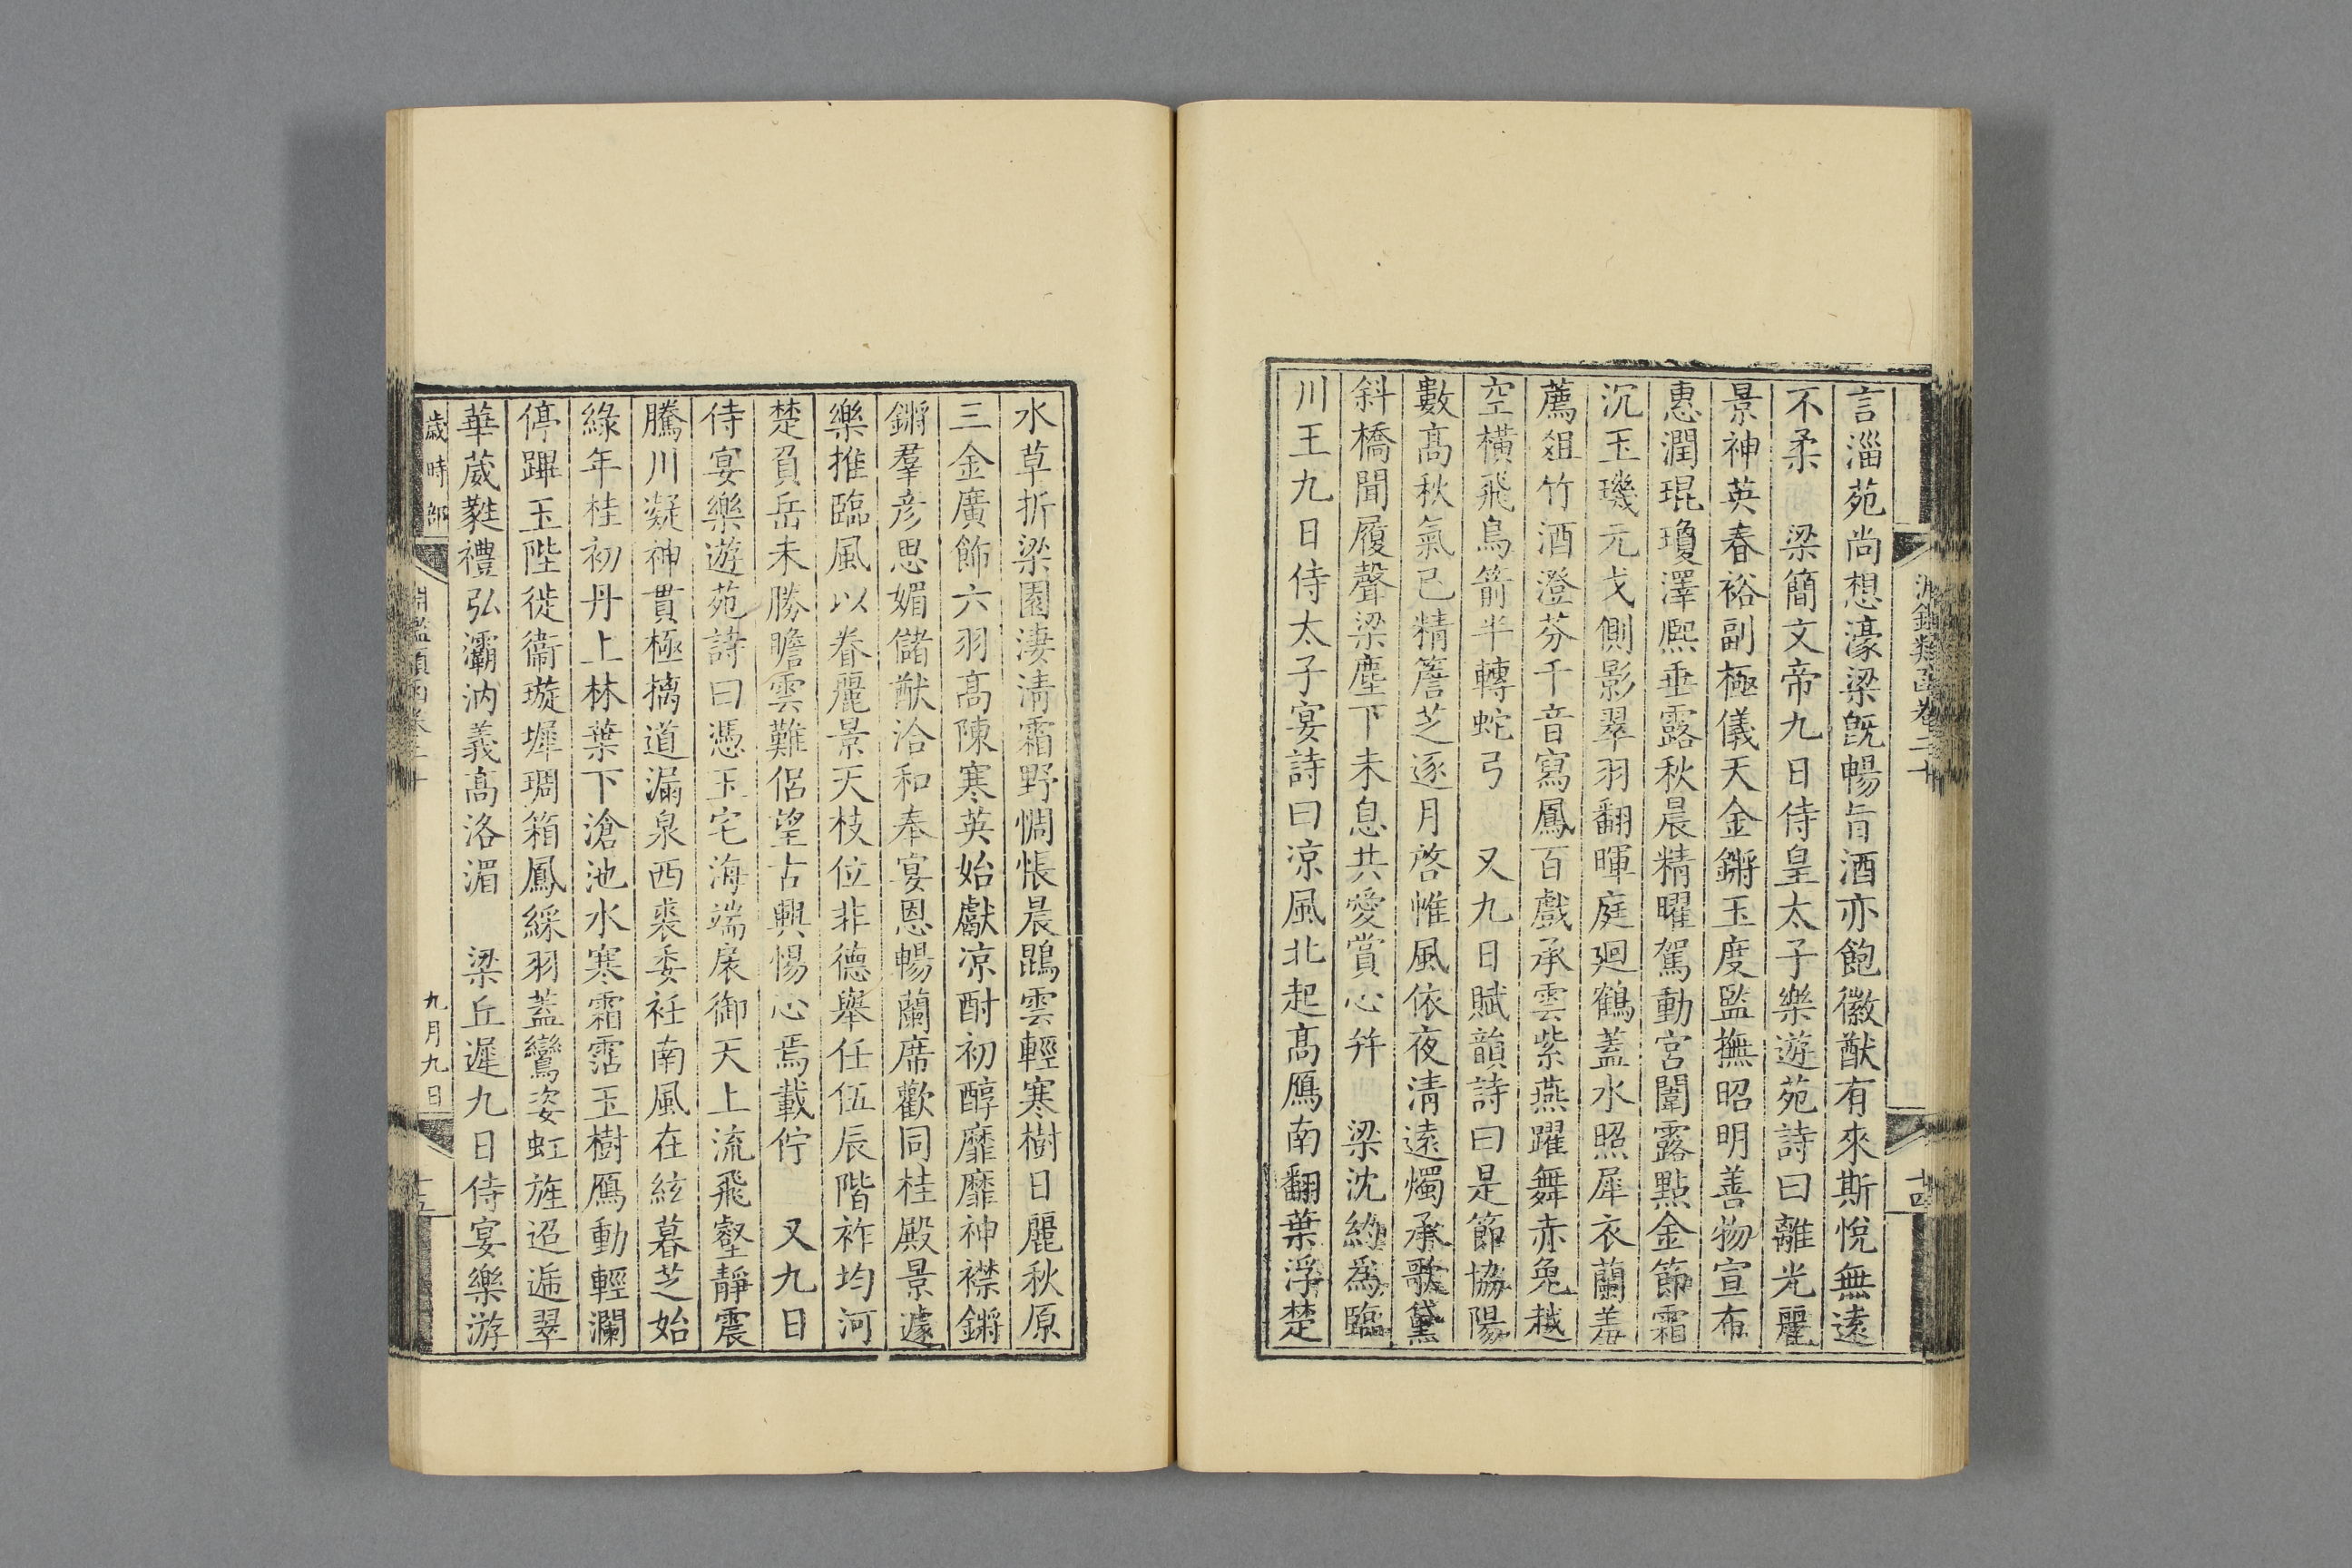 言淄苑尚想濠梁旣暢旨酒亦飽徽猷有來斯悅無遠
不柔　梁簡文帝九日侍皇太子樂遊苑詩曰離光麗
景神英春裕副極儀天金鏘玉度監撫昭明善物宣布
惠潤琨瓊澤熈垂露秋晨精曜駕動宮闈露點金節霜
沉玉璣元戈側影翠羽翻暉庭廻鶴蓋水照犀衣蘭羞
薦俎竹酒澄芬千音寫鳳百戲承雲紫燕躍舞赤兔越
空橫飛鳥箭半轉蛇弓　又九日賦韻詩曰是節協陽
數髙秋氣已精簷芝逐月啓帷風依夜清遠燭承歌黛
斜橋聞履聲梁塵下未息共愛賞心并　梁沈約為臨
川王九日侍太子宴詩曰凉風北起髙鴈南翻葉浮楚
水草折梁園淒清霜野惆悵晨鵾雲輕寒樹日麗秋原
三金廣飾六羽髙陳寒英始獻凉酎初醇靡靡神襟鏘
鏘羣彦思媚儲猷洽和奉宴恩暢蘭席歡同桂殿景遽
樂推臨風以眷麗景天枝位非德舉任伍辰階祚均河
楚負岳未勝瞻雲難侶望古興惕心焉載佇　又九日
侍宴樂遊苑詩曰憑玉宅海端扆御天上流飛壑靜震
騰川凝神貫極摛道漏泉西裘委衽南風在絃暮芝始
綠年桂初丹上林葉下滄池水寒霜霑玉樹鴈動輕瀾
停蹕玉陛徙衞璇墀琱箱鳳綵羽蓋鸞姿虹旌迢遞翠
華葳蕤禮弘灞汭義髙洛湄　梁丘遲九日侍宴樂游
歲時部
九月九日